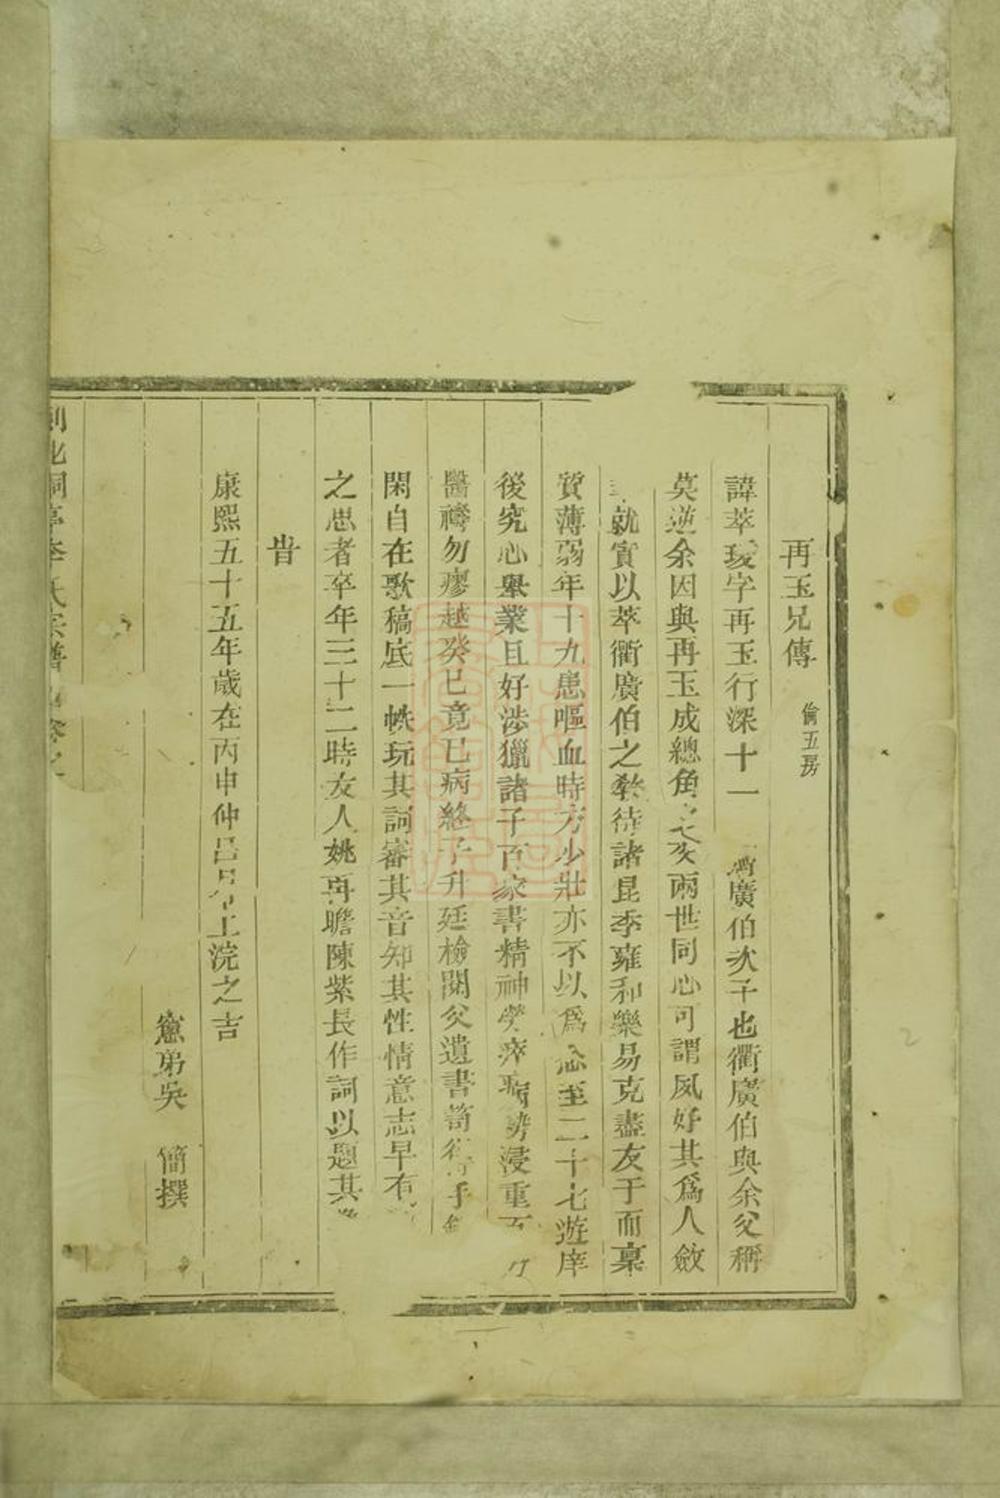 再玉兄傳 倫五房
諱萃瑷字再玉行深十一衢廣伯次子也衢廣伯與余父稱
莫逆余因與再玉成總角之交兩世同心可謂夙好其爲人斂
就實以萃衢廣伯之教待諸昆季雍和樂易克盡友于而稟
質薄弱年十九患嘔血時方少壯亦不以爲念至二十七遊庠
後究心舉業且好涉獵諸子百家書精神勞瘁病勢浸重百
醫禱勿瘳越癸巳竟已病終子升廷檢閱父遺書笥得手
閑自在歌稿底一帙玩其詞審其音知其性情意志早有
之思者卒年三十二時友人姚再瞻陳紫長作詞以題其
旹
康熙五十五年歲在丙申仲呂月上浣之吉
窻弟吳 簡撰
剡北洞亭李氏宗譜 卷之